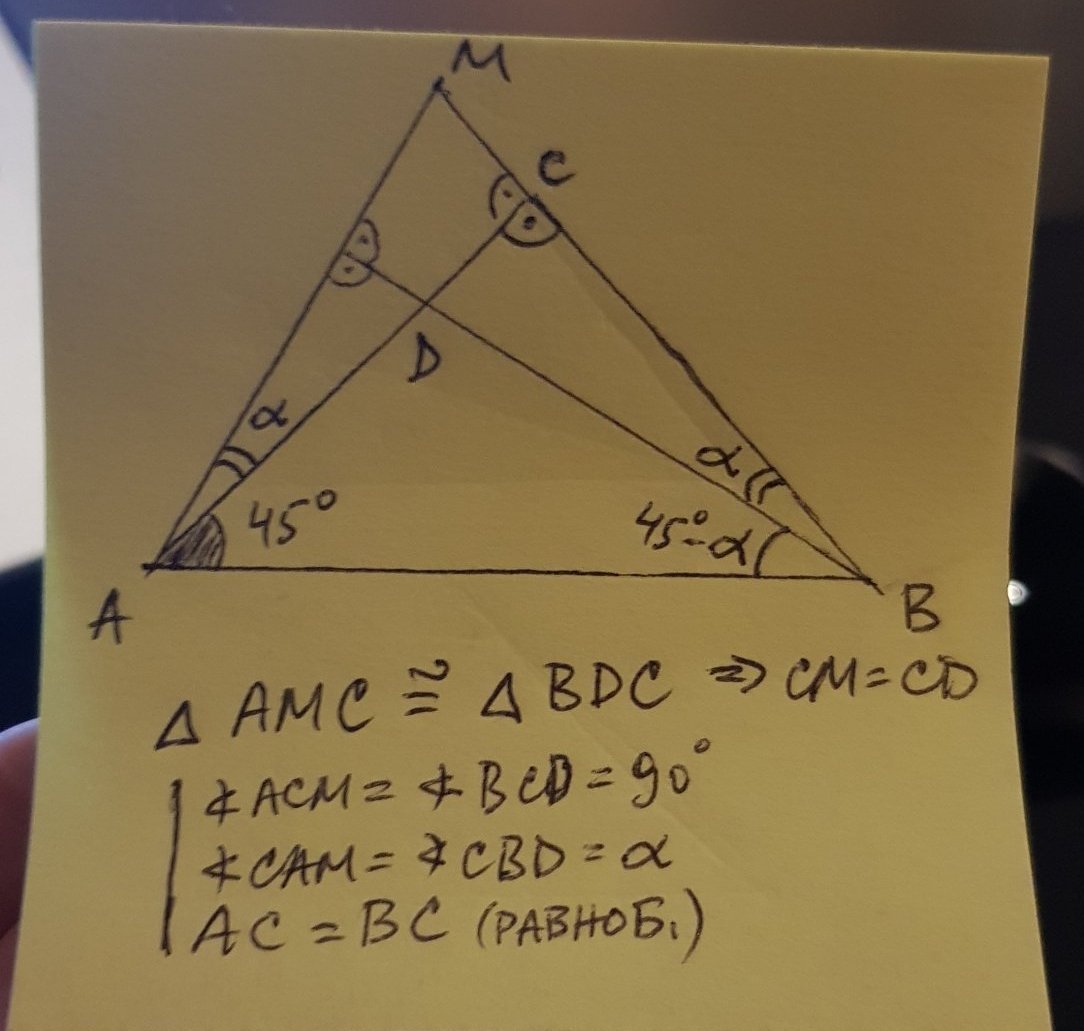 M
C
D
α
α
45°
45°-α
A
B
△ AMC ≅ △ BDC ⇒ CM = CD
∢ACM = ∢BCD = 90°
∢CAM = ∢CBD = α
AC = BC (РАВНОБ.)